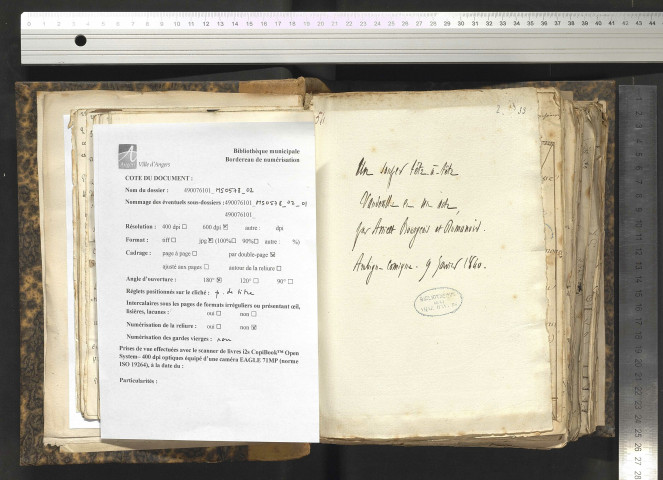 Angers
Ville d'Angers
Bibliothèque municipale
Bordereau de numérisation
COTE DU DOCUMENT :
Nom du dossier : 490076101_ MS0578_02
Nommage des éventuels sous-dossiers : 490076101_ MS0578_02_01
490076101_
Résolution : 400 dpi ☐ 600 dpi ☒ autre : dpi
Format : tiff ☐ jpg ☒ (100% ☐ 90% ☐ autre : %)
Cadrage : page à page ☐ par double-page ☒
ajusté aux pages ☐ autour de la reliure ☐
Angle d'ouverture : 180° ☒ 120° ☐ 90° ☐
Réglets positionnés sur le cliché : p. de titre
Intercalaires sous les pages de formats irréguliers ou présentant œil,
lisières, lacunes : oui ☐ non ☐
Numérisation de la reliure : oui ☐ non ☒
Numérisation des gardes vierges : non
Prises de vue effectuées avec le scanner de livres i2s CopiBook™ Open
System– 400 dpi optiques équipé d'une caméra EAGLE 71MP (norme
ISO 19264), à la date du :
Particularités :
Un souper tête-à-tête
Vaudeville en un acte,
par Anicet Bourgeois et Dumanoir.
Ambigu-comique. 9 Janvier 1860.
BIBLIOTHÈQUE